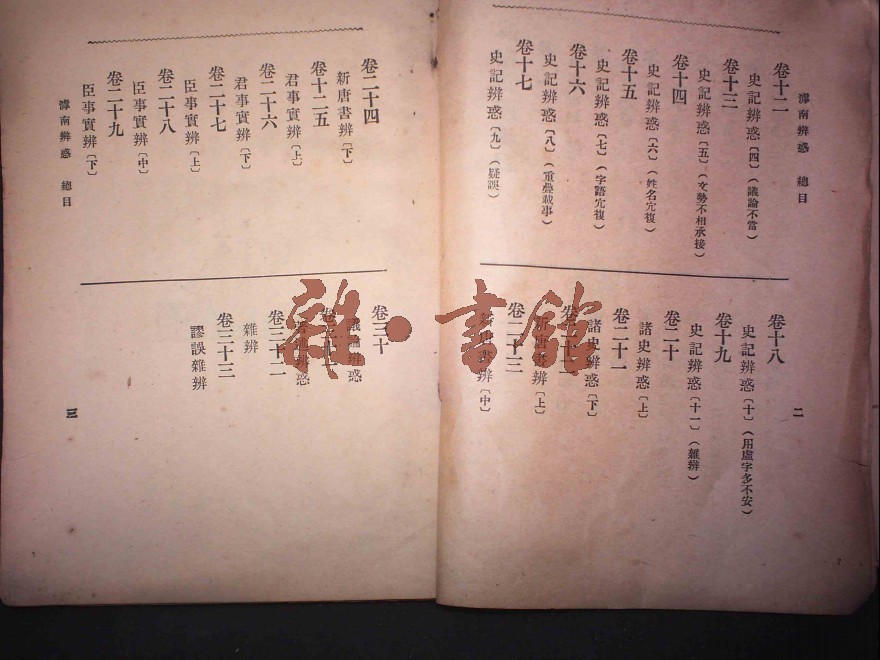 滹南辨惑 總目
二
卷十二
史記辨惑〔四〕(議論不當)
卷十三
史記辨惑〔五〕(文勢不相承接)
卷十四
史記辨惑〔六〕(姓名宂複)
卷十五
史記辨惑〔七〕(字語宂複)
卷十六
史記辨惑〔八〕(重疊載事)
卷十七
史記辨惑〔九〕(疑誤)
卷十八
史記辨惑〔十〕(用虛字多不安)
卷十九
史記辨惑〔十一〕(雜辨)
卷二十
諸史辨惑〔上〕
卷二十一
諸史辨惑〔下〕
卷二十二
新唐書辨〔上〕
卷二十三
新唐書辨〔中〕
卷二十四
新唐書辨〔下〕
卷十二五
君事實辨〔上〕
卷二十六
君事實辨〔下〕
卷二十七
臣事實辨〔上〕
卷二十八
臣事實辨〔中〕
卷二十九
臣事實辨〔下〕
卷三十
議論辨惑
卷三十一
辨惑
卷三十二
雜辨
卷三十三
謬誤雜辨
滹南辨惑 總目
三
雜·書館